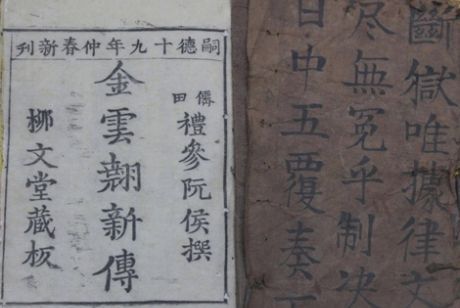 嗣德十九年仲春新刊
僊田
禮參阮侯撰
金雲翹新傳
柳文堂藏板
斷獄唯據律文
尽無冤乎制决
日中五覆奏